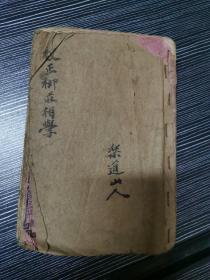 改正柳莊相學
柴道山人